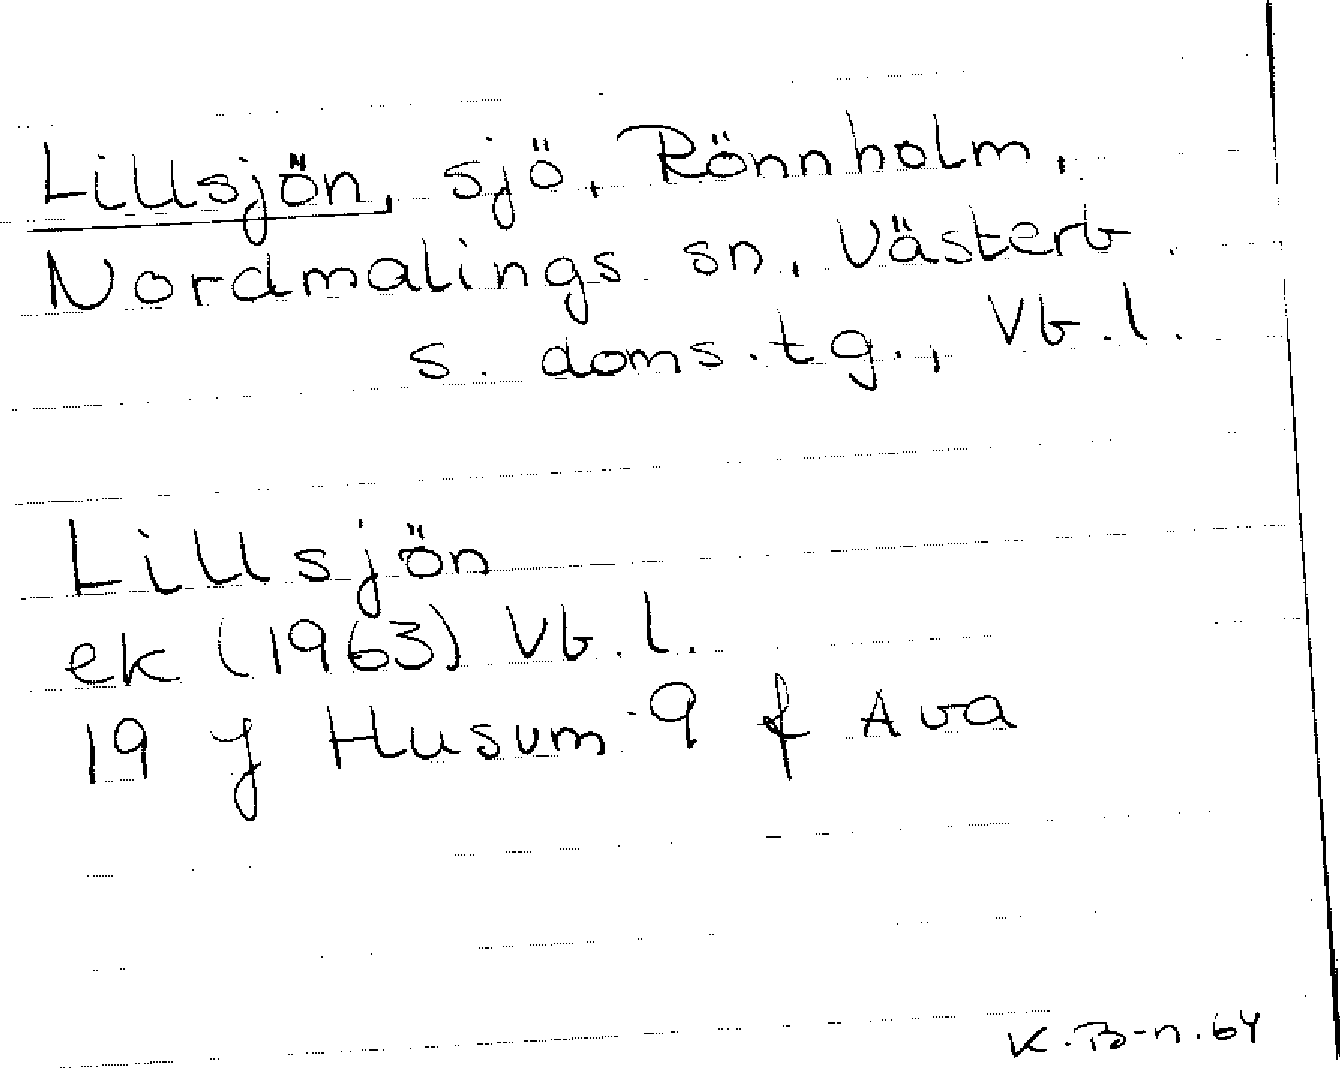 Lillsjön, sjö, Rönnholm,
Nordmalings sn, Västerb.
s. doms.tg., Vb.l.
Lillsjön
ek (1963) Vb.l.
19 J Husum 9 f Ava
K.B-n.64